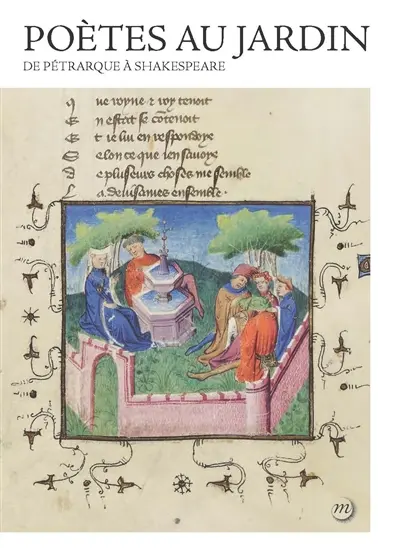 POÈTES AU JARDIN
DE PÉTRARQUE À SHAKESPEARE
Q ue royne & roy tenoit
E n estat se cōtenoit
E t ie lui en respondoye
S elon ce que ien sauoye
D e plusieurs choses me semble
L a. deuisames ensemble.
m